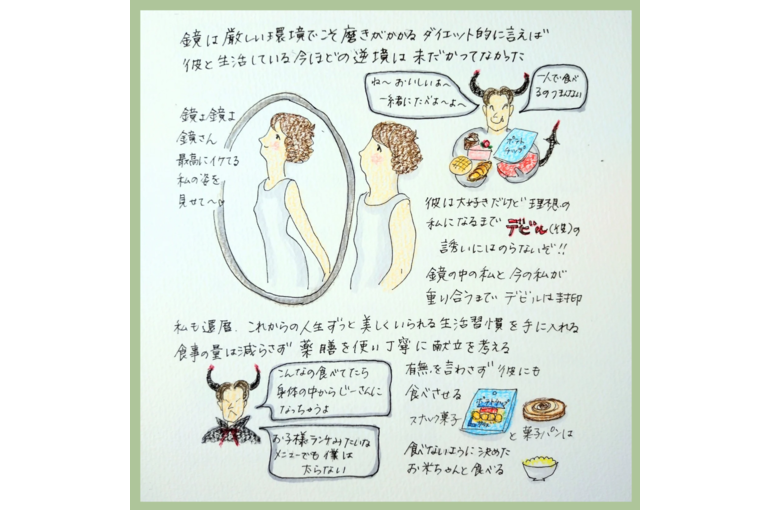 鏡は厳しい環境でこそ磨きがかかる ダイエット的に言えば
彼と生活している今ほどの逆境は未だかつてなかった
ね〜おいしいよ〜
一緒にたべよ〜よ〜
一人で食べ
るのつまんない
鏡よ鏡よ
鏡さん
最高にイケてる
私の姿を
見せて〜
ポテト
チップ
彼は大好きだけど 理想の
私になるまで デビル(彼)の
誘いにはのらないぞ!!
鏡の中の私と 今の私が
重り合うまで デビルは封印
私も還暦、これからの人生ずっと美しくいられる生活習慣を手に入れる
食事の量は減らさず 薬膳を使い丁寧に献立を考える
こんなの食べてたら
身体の中からじーさんに
なっちゃうよ
お子様ランチみたいな
メニューでも 僕は
太らない
有無を言わさず 彼にも
食べさせる
スナック菓子
と 菓子パンは
食べないように決めた
お米ちゃんと食べる